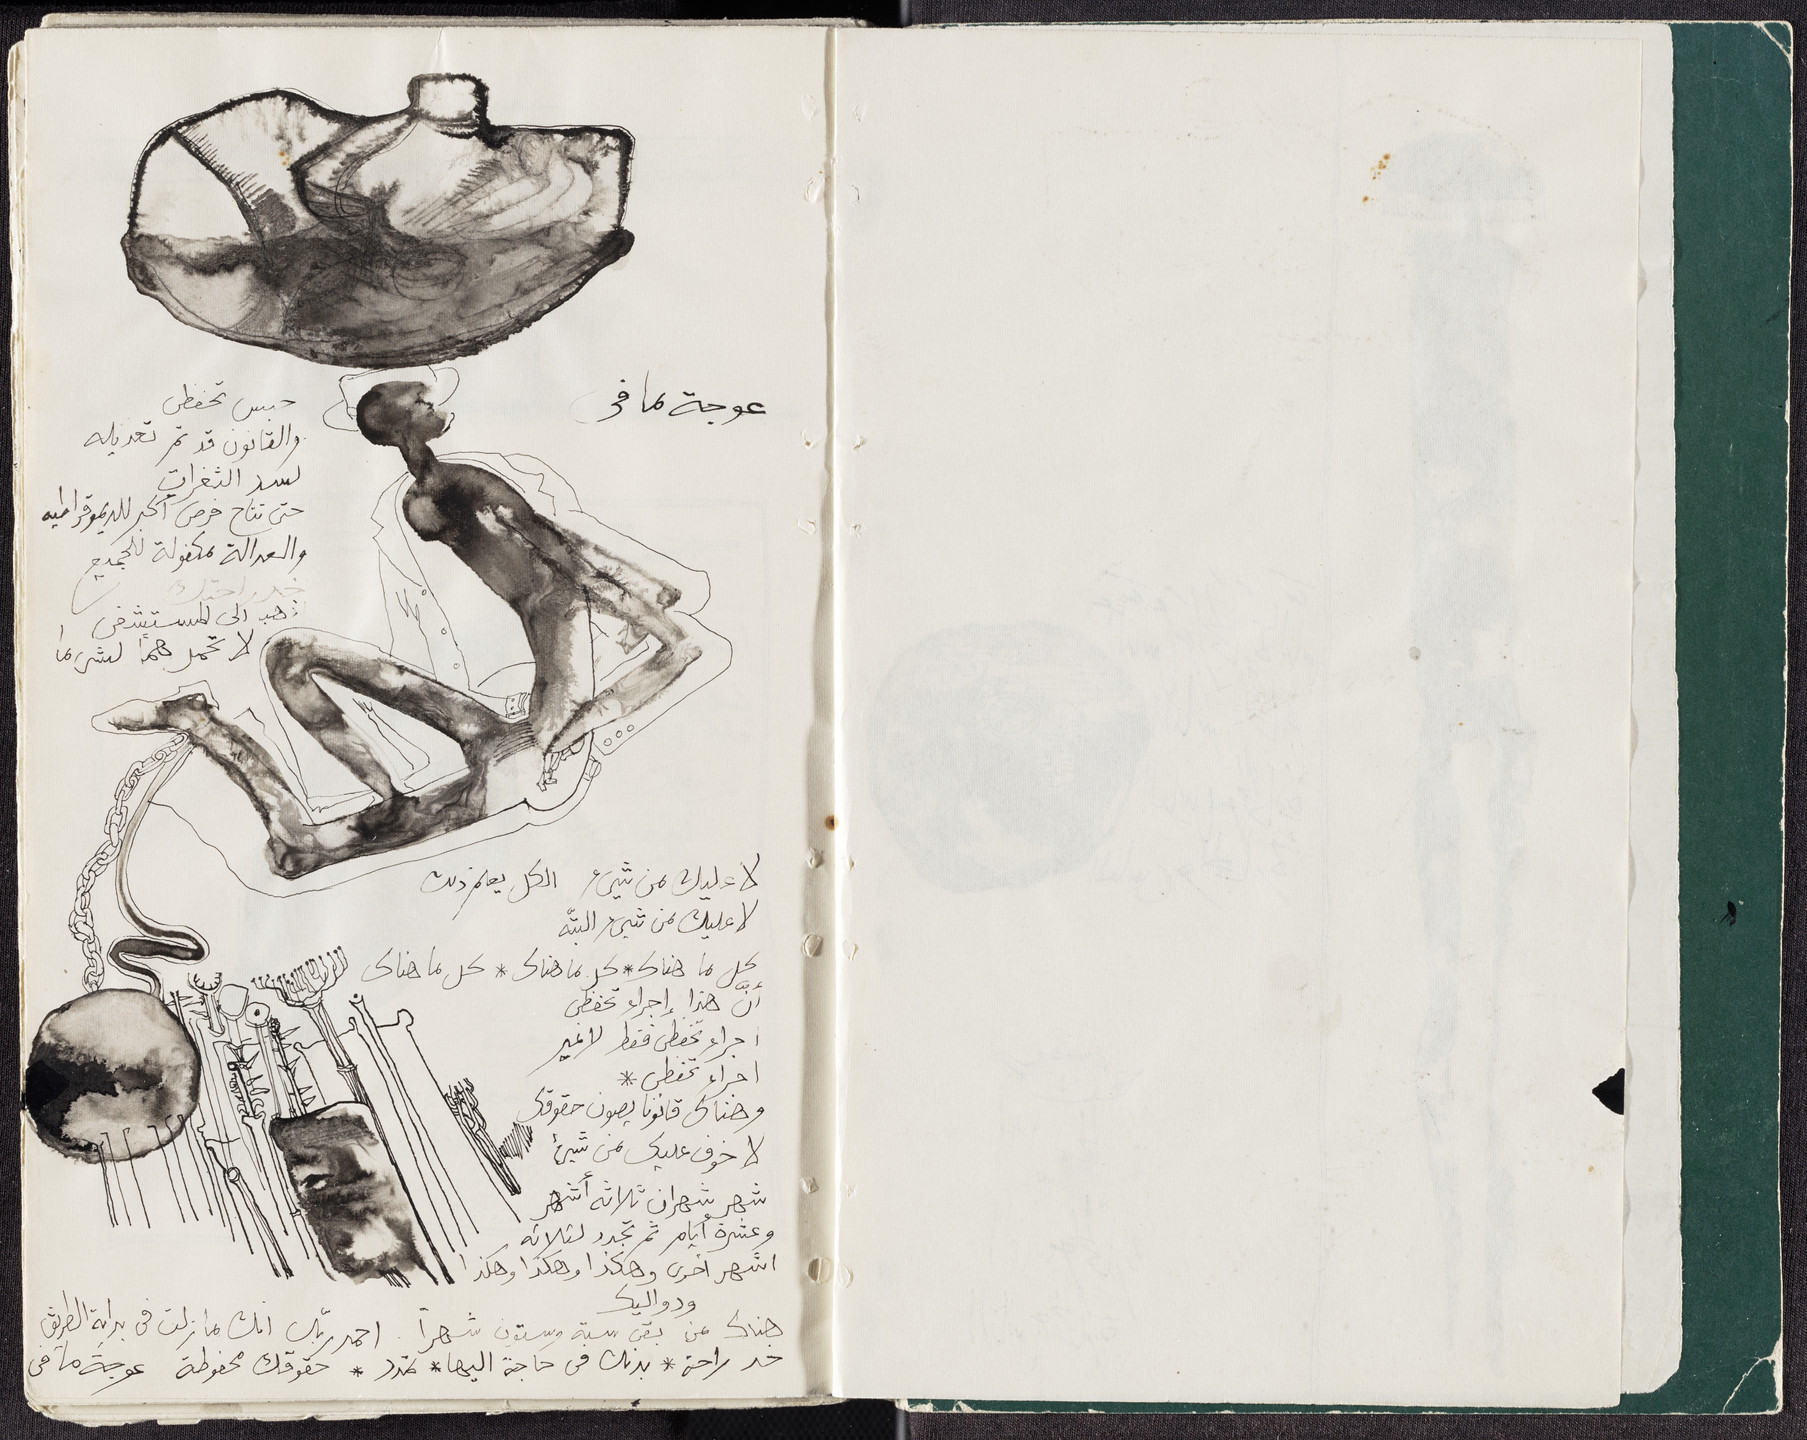 عوجة مافى
حبس تحفظى
والقانون قد تم تعديله
لسد الثغرات
حتى تتاح فرص أكبر للديموقراطيه
والعدالة مكفولة للجميع
خد راحتك
اذهب الى المستشفى
لا تحمل همّا لشىء ما
لا عليك من شىء الكل يعلم ذلك
لا عليك من شىء البتّه
كل ما هناك * كل ما هناك * كل ما هناك
أنّ هذا إجراء تحفظى
اجراء تحفظى فقط لا غير
اجراء تحفظى *
وهناك قانونا يصون حقوقك
لا خوف عليك من شىء
شهر شهران ثلاثه أشهر
وعشرة أيام ثم تجدد لثلاثه
اشهر أخرى وهكذا وهكذا وهكذا
ودواليك
هناك من بقى ستة وستون شهراً . احمد ربّك انك مازلت فى بداية الطريق
خد راحة * بدنك فى حاجة اليها * تمدد * حقوقك محفوظة عوجة مافى